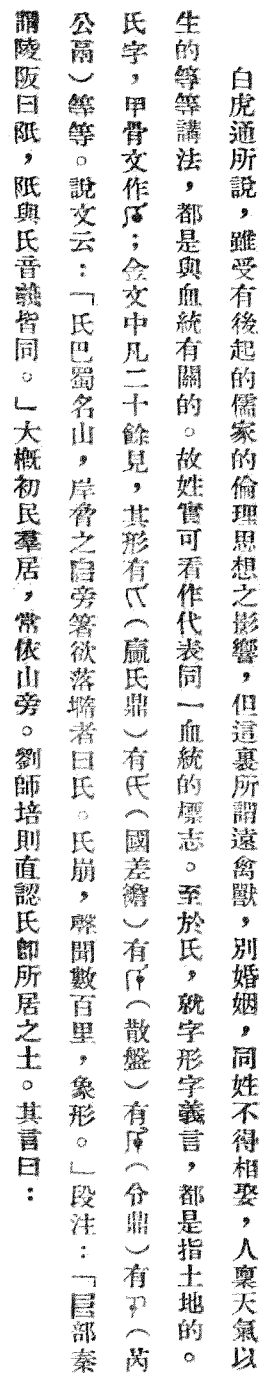 白虎通所說，雖受有後起的儒家的倫理思想之影響，但這裏所謂遠禽獸，別婚姻，同姓不得相娶，人稟天氣以
生的等等講法，都是與血統有關的。故姓實可看作代表同一血統的標志。至於氏，就字形字義言，都是指土地的。
氏字，甲骨文作；金文中凡二十餘見，其形有（贏氏鼎）有（國差𦉜）有（散盤）有（㝬鼎）有（芮
公鬲）等等。說文云：「氏巴蜀名山，岸脅之𠂤旁箸欲落墮者曰氏。氏崩，聲聞數百里，象形。」段注：「𠂤部秦
謂陵阪曰阺，阺與氏音義皆同。」大概初民羣居，常依山旁。劉師培則直認氏卽所居之土。其言曰：